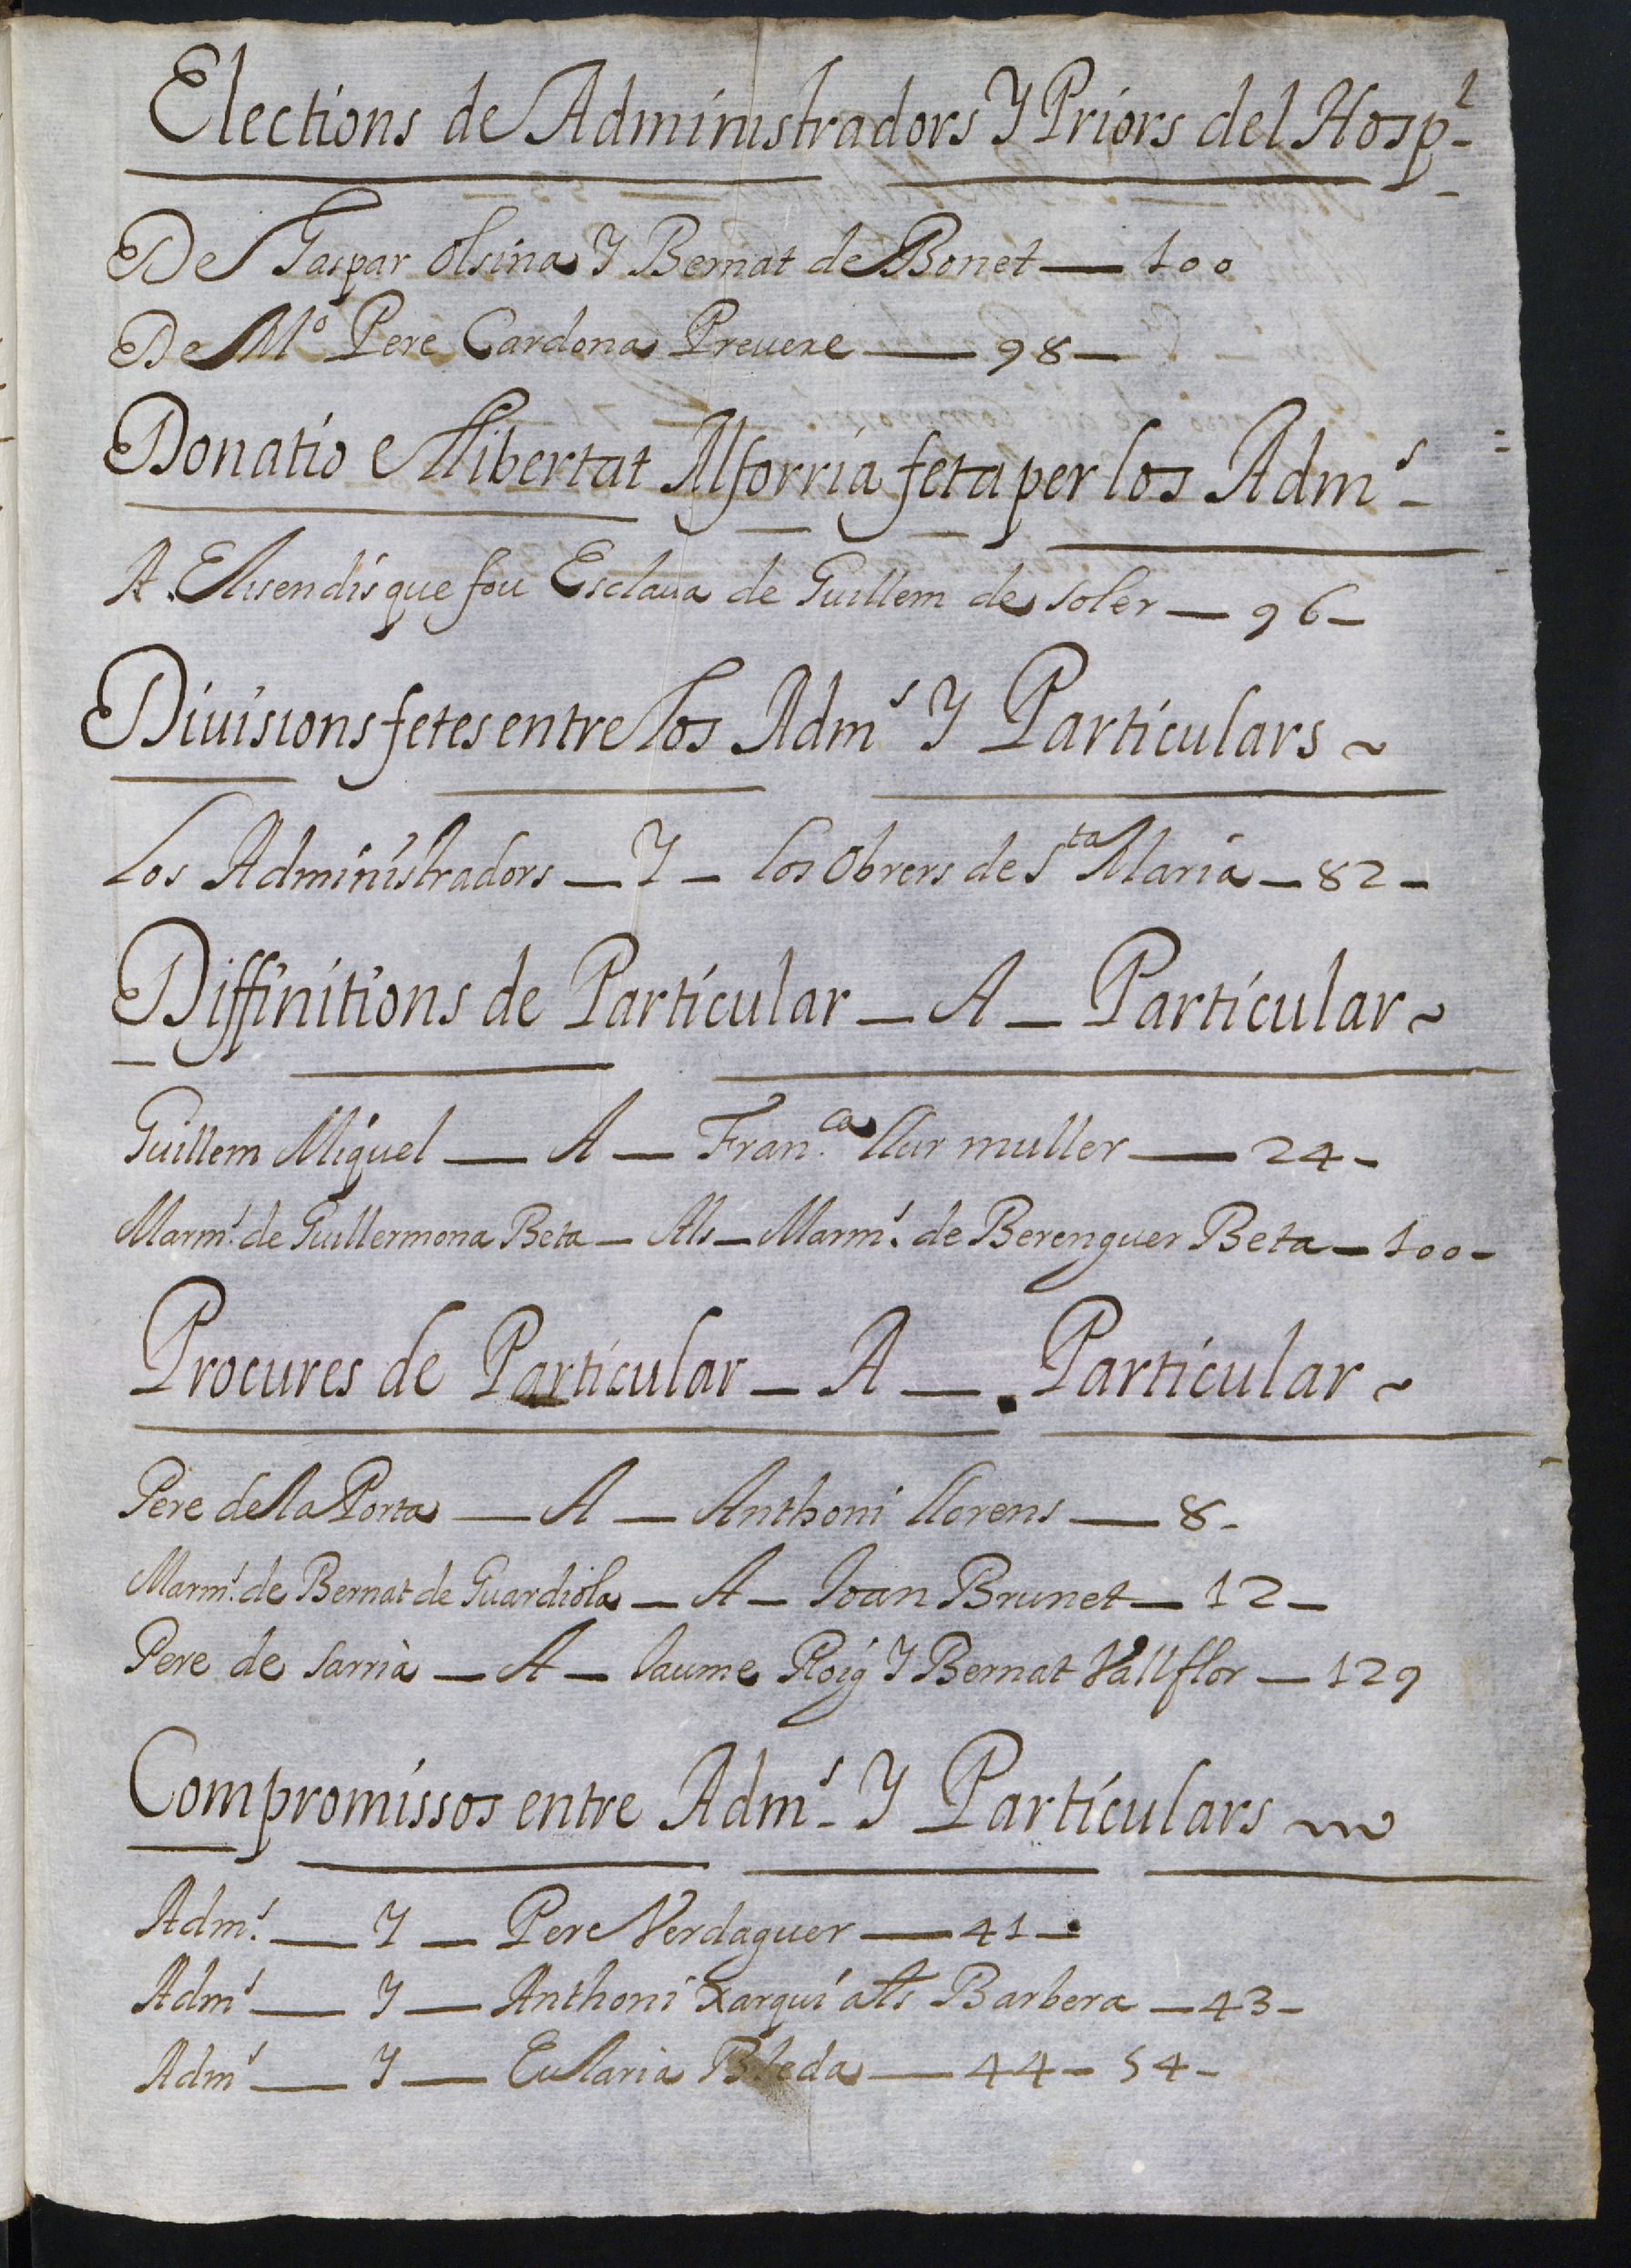 Elections de Administradors Y Priors del Hosp.l
De Gaspar Olsina Y Bernat de Bonet — 100
De Mo Pere Cardona Prevere — 98 —
Donatio e llibertat Alforria feta per los Adm.s
A Elisendis que fou Esclava de Guillem de Soler — 96 —
Divisions fetes entre los Adm.s Y Particulars ~
Los Administradors — Y — los Obrers de S.ta Maria — 82 —
Diffinitions de Particular — A — Particular ~
Guillem Miquel — A — Fran.ca llur muller — 24 —
Marm.s de Guillermona Beta — Als — Marm.s de Berenguer Beta — 100 —
Procures de Particular — A — Particular ~
Pere de la Porta — A — Anthoni llorens — 8 —
Marm.s de Bernat de Guardiola — A — Joan Brunet — 12 —
Pere de Sarria — A — Jaume Roig Y Bernat Vallflor — 129
Compromissos entre Adm.s Y Particulars
Adm.s — Y — Pere Verdaguer — 41 —
Adm.s — Y — Anthoni Xarqui als Barbera — 43 —
Adm.s — Y — Eularia Bleda — 44 — 54 —